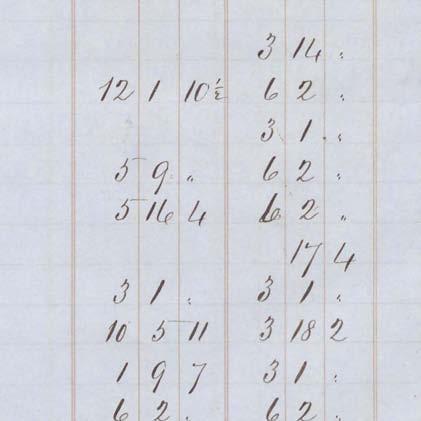 3 14 "
12 1 10½ 6 2 "
3 1 "
5 9 " 6 2 "
5 16 4 6 2 "
17 4
3 1 " 3 1 "
10 5 11 3 18 2
1 9 7 3 1 "
6 2 " 6 2 "